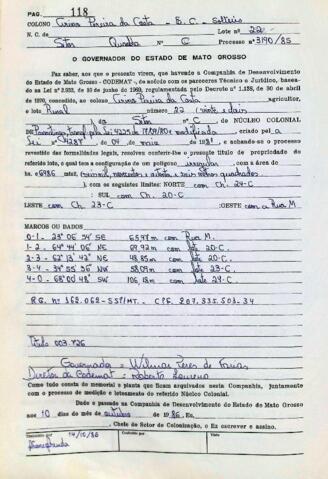 PAG. 118
COLONO Cirior Pereira da Costa - B.C. - Solteiro
Lote nº 22
N. C. de Sitor Quadra C Processo nº 3190/85
O GOVERNADOR DO ESTADO DE MATO GROSSO
Faz saber, aos que o presente virem, que havendo a Companhia de Desenvolvimento
do Estado de Mato Grosso - CODEMAT -, de acordo com os pareceres Técnico e Jurídico, basea-
do na Lei nº 2.932, de 10 de junho de 1969, regulamentado pelo Decreto nº 1.138, de 30 de abril
de 1970, concedido, ao colono Pereira da Costa agricultor,
o lote Rural número 22 (vinte e dois
do Sitor nº C DE NÚCLEO COLONIAL
Lei 4225 modificada criado pel a
Lei nº 4287 de 04 de maio de 1981, e achando-se o processo
revestido das formalidades legais, resolveu conferir-lhe o presente título de propriedade do
referido lote, o qual tem a configuração de um polígono irregular com a área de
ha 6486 mts metros quadrados
), com os seguintes limites: NORTE com Ch. 24-C
; SUL com Ch. 20-C
LESTE com Ch. 23-C ;OESTE com a Rua M
MARCOS OU DADOS
0-1 - 23º 06' 54" SE 65,97 m com Rua M.
1-2 - 64º 44' 06" NE 69,92 m com lote 20-C.
2-3 - 62º 13' 42" NE 48,85 m com lote 20-C.
3-4 - 34º 55' 36" NW 58,09 m com lote 23-C.
4-0 - 68º 00' 48" SW 106,13 m com lote 24-C.
RG. nº 162.062-SSP/MT. - CPF. 207.335.501-34
Título 003.726
Governador = Wilmar Peres de Farias
Diretor da Codemat = Roberto Loureiro
Como tudo consta do memorial e planta que ficam arquivados nesta Companhia, juntamente
com o processo de medição e loteamento do referido Núcleo Colonial.
Dado e passado na Companhia de Desenvolvimento do Estado de Mato Grosso
aos 10 dias do mês de outubro de 1986. Eu,
Chefe do Setor de Colonização, o Ex escrever e assino.
14/10/86
Conferido por
Visto